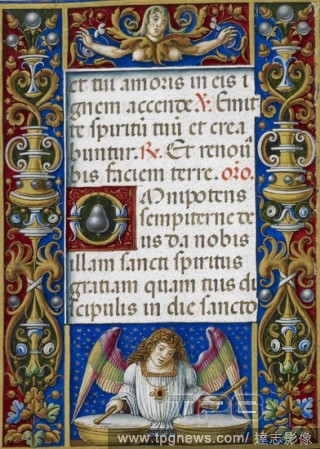 et tui amoris in eis i
gnem accende V̷. Emit
te spiritū tuū et crea
buntur. R̷. Et renoua
bis faciem terre. oro.
Omnipotens
sempiterne de
us da nobis
illam sancti spiritus
gratiam quam tuis di
scipulis in die sancto
TPG
www.tpgnews.com/ 達志影像